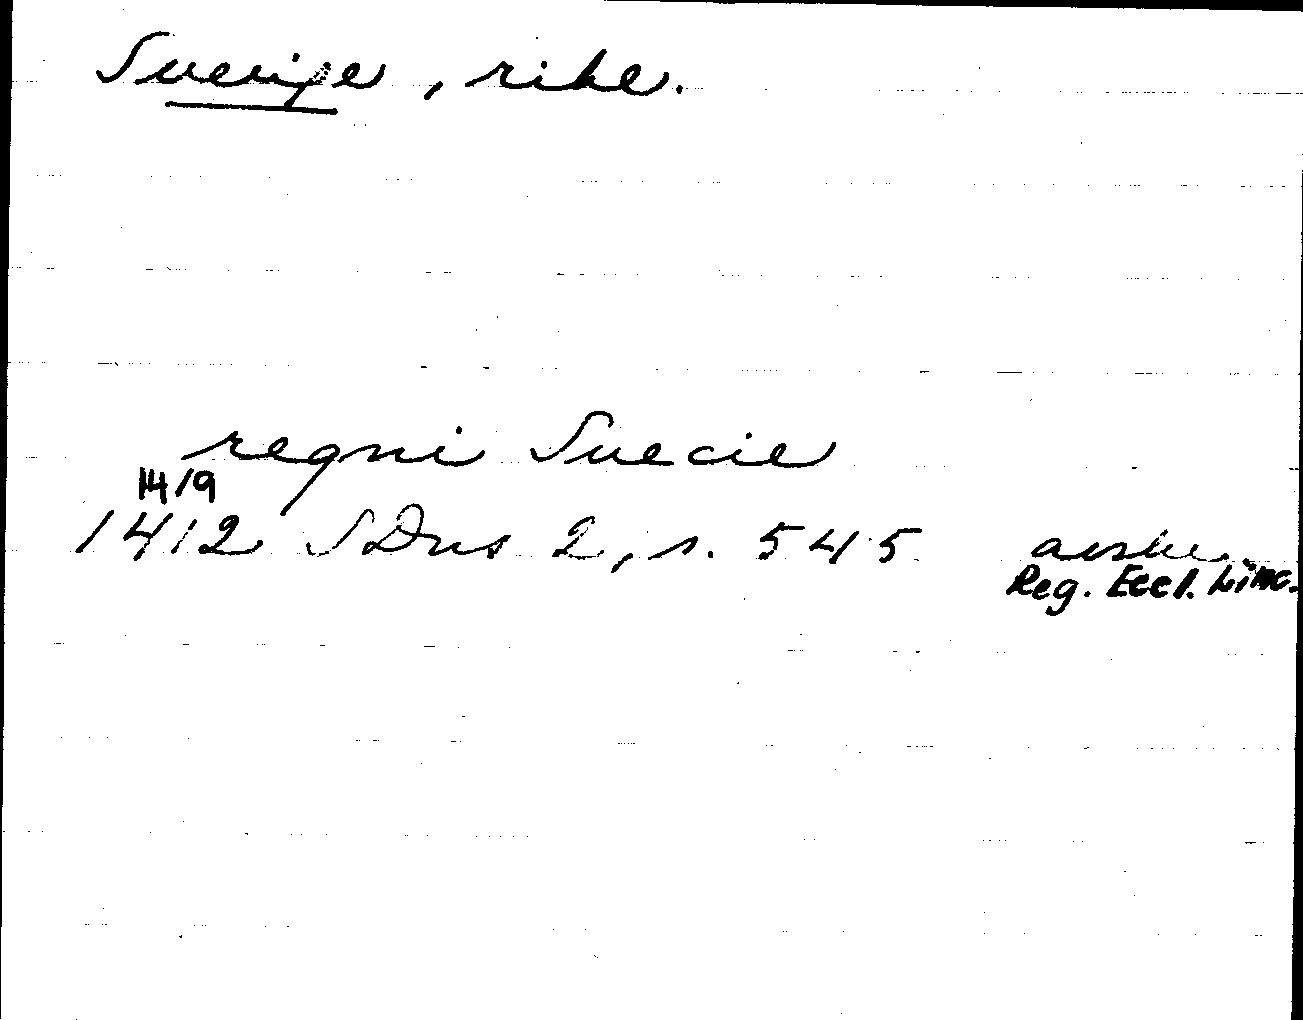 Sverige, rike.
regni Suecie
14/9
1412 SDns 2, s. 545 avskr.
Reg. Eccl. Linc.